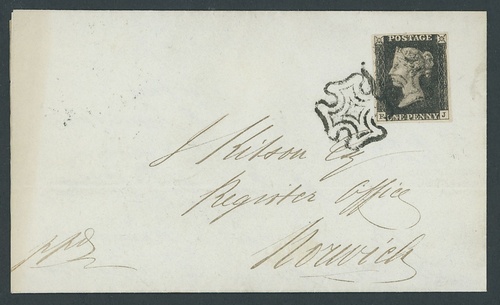 POSTAGE
E J
ONE PENNY
J Kitson Esq
Register Office
Norwich